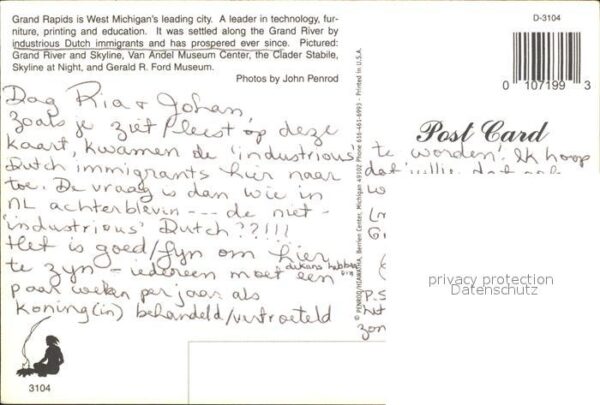 Grand Rapids is West Michigan's leading city. A leader in technology, fur-
niture, printing and education. It was settled along the Grand River by
industrious Dutch immigrants and has prospered ever since. Pictured:
Grand River and Skyline, Van Andel Museum Center, the Clader Stabile,
Skyline at Night, and Gerald R. Ford Museum.
Photos by John Penrod
D-3104
0 107199 3
Post Card
© PENROD/HIAWATHA, Berrien Center, Michigan 49102 Phone 616-461-6993 • Printed in U.S.A.
Dag Ria + Johan,
zoals je ziet/leest op deze
kaart, kwamen de 'industrious'
Dutch immigrants hier naar
toe. De vraag is dan wie in
NL achterblevin --- de niet-
'industrious' Dutch??!!!
Het is goed/fyn om hier
te zyn - iedereen moet een
de kans hebben om
paar weken per jaar als
koning(in) behandeld/vertroeteld
te worden! Ik hoop
dat jullie dat ook
P.S.
het
zon
privacy protection
Datenschutz
3104